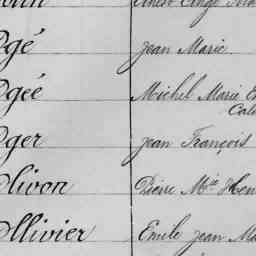 Ogé Jean Marie
Ogée Michel Marie
Oger Jean François
Olivon Pierre Mie Hen
Ollivier Emile Jean Ma